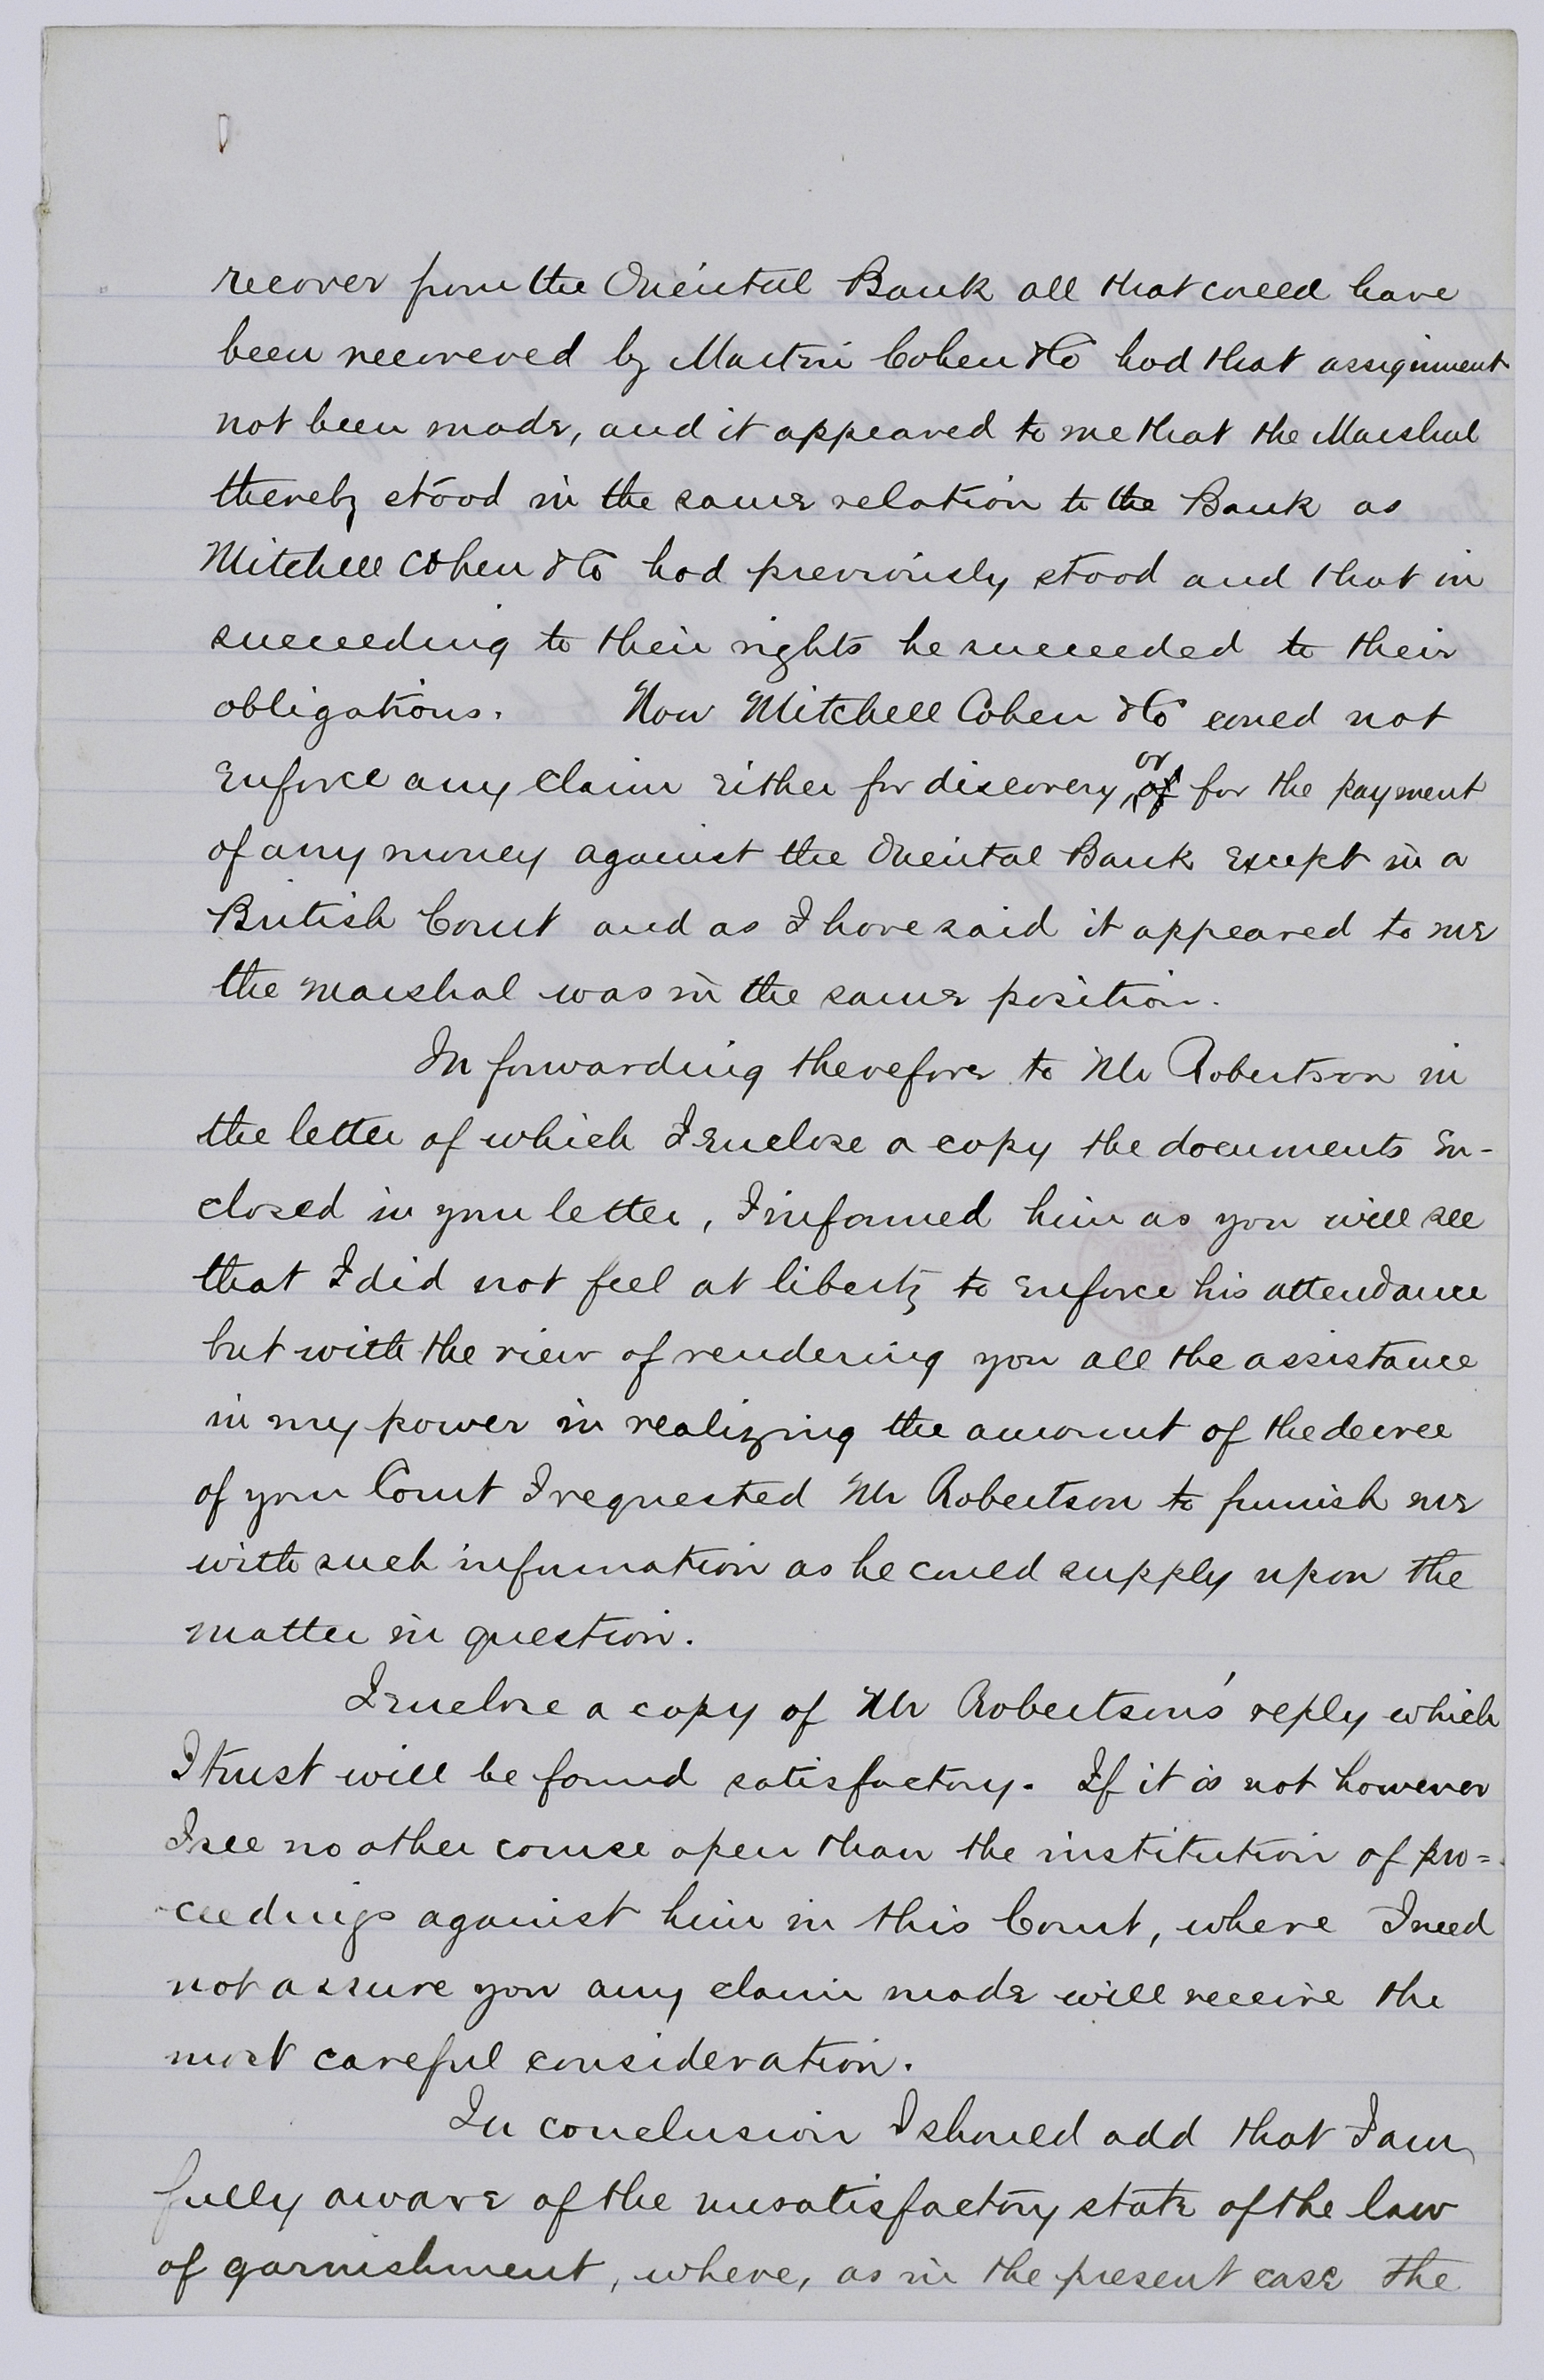 recover from the Oriental Bank all that could have
been recovered by Martin Cohen & Co had that assignment
not been made, and it appeared to me that the Marshal
thereby stood in the same relation to the Bank as
Mitchell Cohen & Co had previously stood and that in
succeeding to their rights he succeeded to their
obligations. Now Mitchell Cohen & Co could not
enforce any claim either for discovery or for the payment
of any money against the Oriental Bank except in a
British Court and as I have said it appeared to me
the marshal was in the same position.
In forwarding therefore to Mr Robertson in
the letter of which I enclose a copy the documents en-
closed in your letter, I informed him as you will see
that I did not feel at liberty to enforce his attendance
but with the view of rendering you all the assistance
in my power in realizing the amount of the decree
of your Court I requested Mr Robertson to furnish me
with such information as he could supply upon the
matter in question.
I enclose a copy of Mr Robertson's reply which
I trust will be found satisfactory. If it is not however
I see no other course open than the institution of pro=
ceedings against him in this Court, where I need
not assure you any claim made will receive the
most careful consideration.
In conclusion I should add that I am
fully aware of the unsatisfactory state of the law
of garnishment, where, as in the present case the